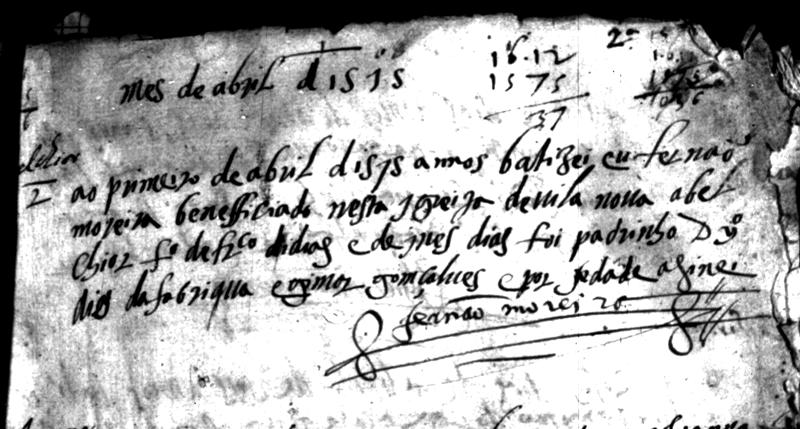 mes de abril d 1575
1612
1575
37
2ª
elchior
2
ao primeiro de abril d 1575 annos batizei eu fernão
moreira benefficiado nesta Igreija de vila noua abel
chior fº de frcº didias e de ines dias foi padrinho D yº
dias da fabriqua e gimor gonçalues e por jedade asinei
fernão moreira